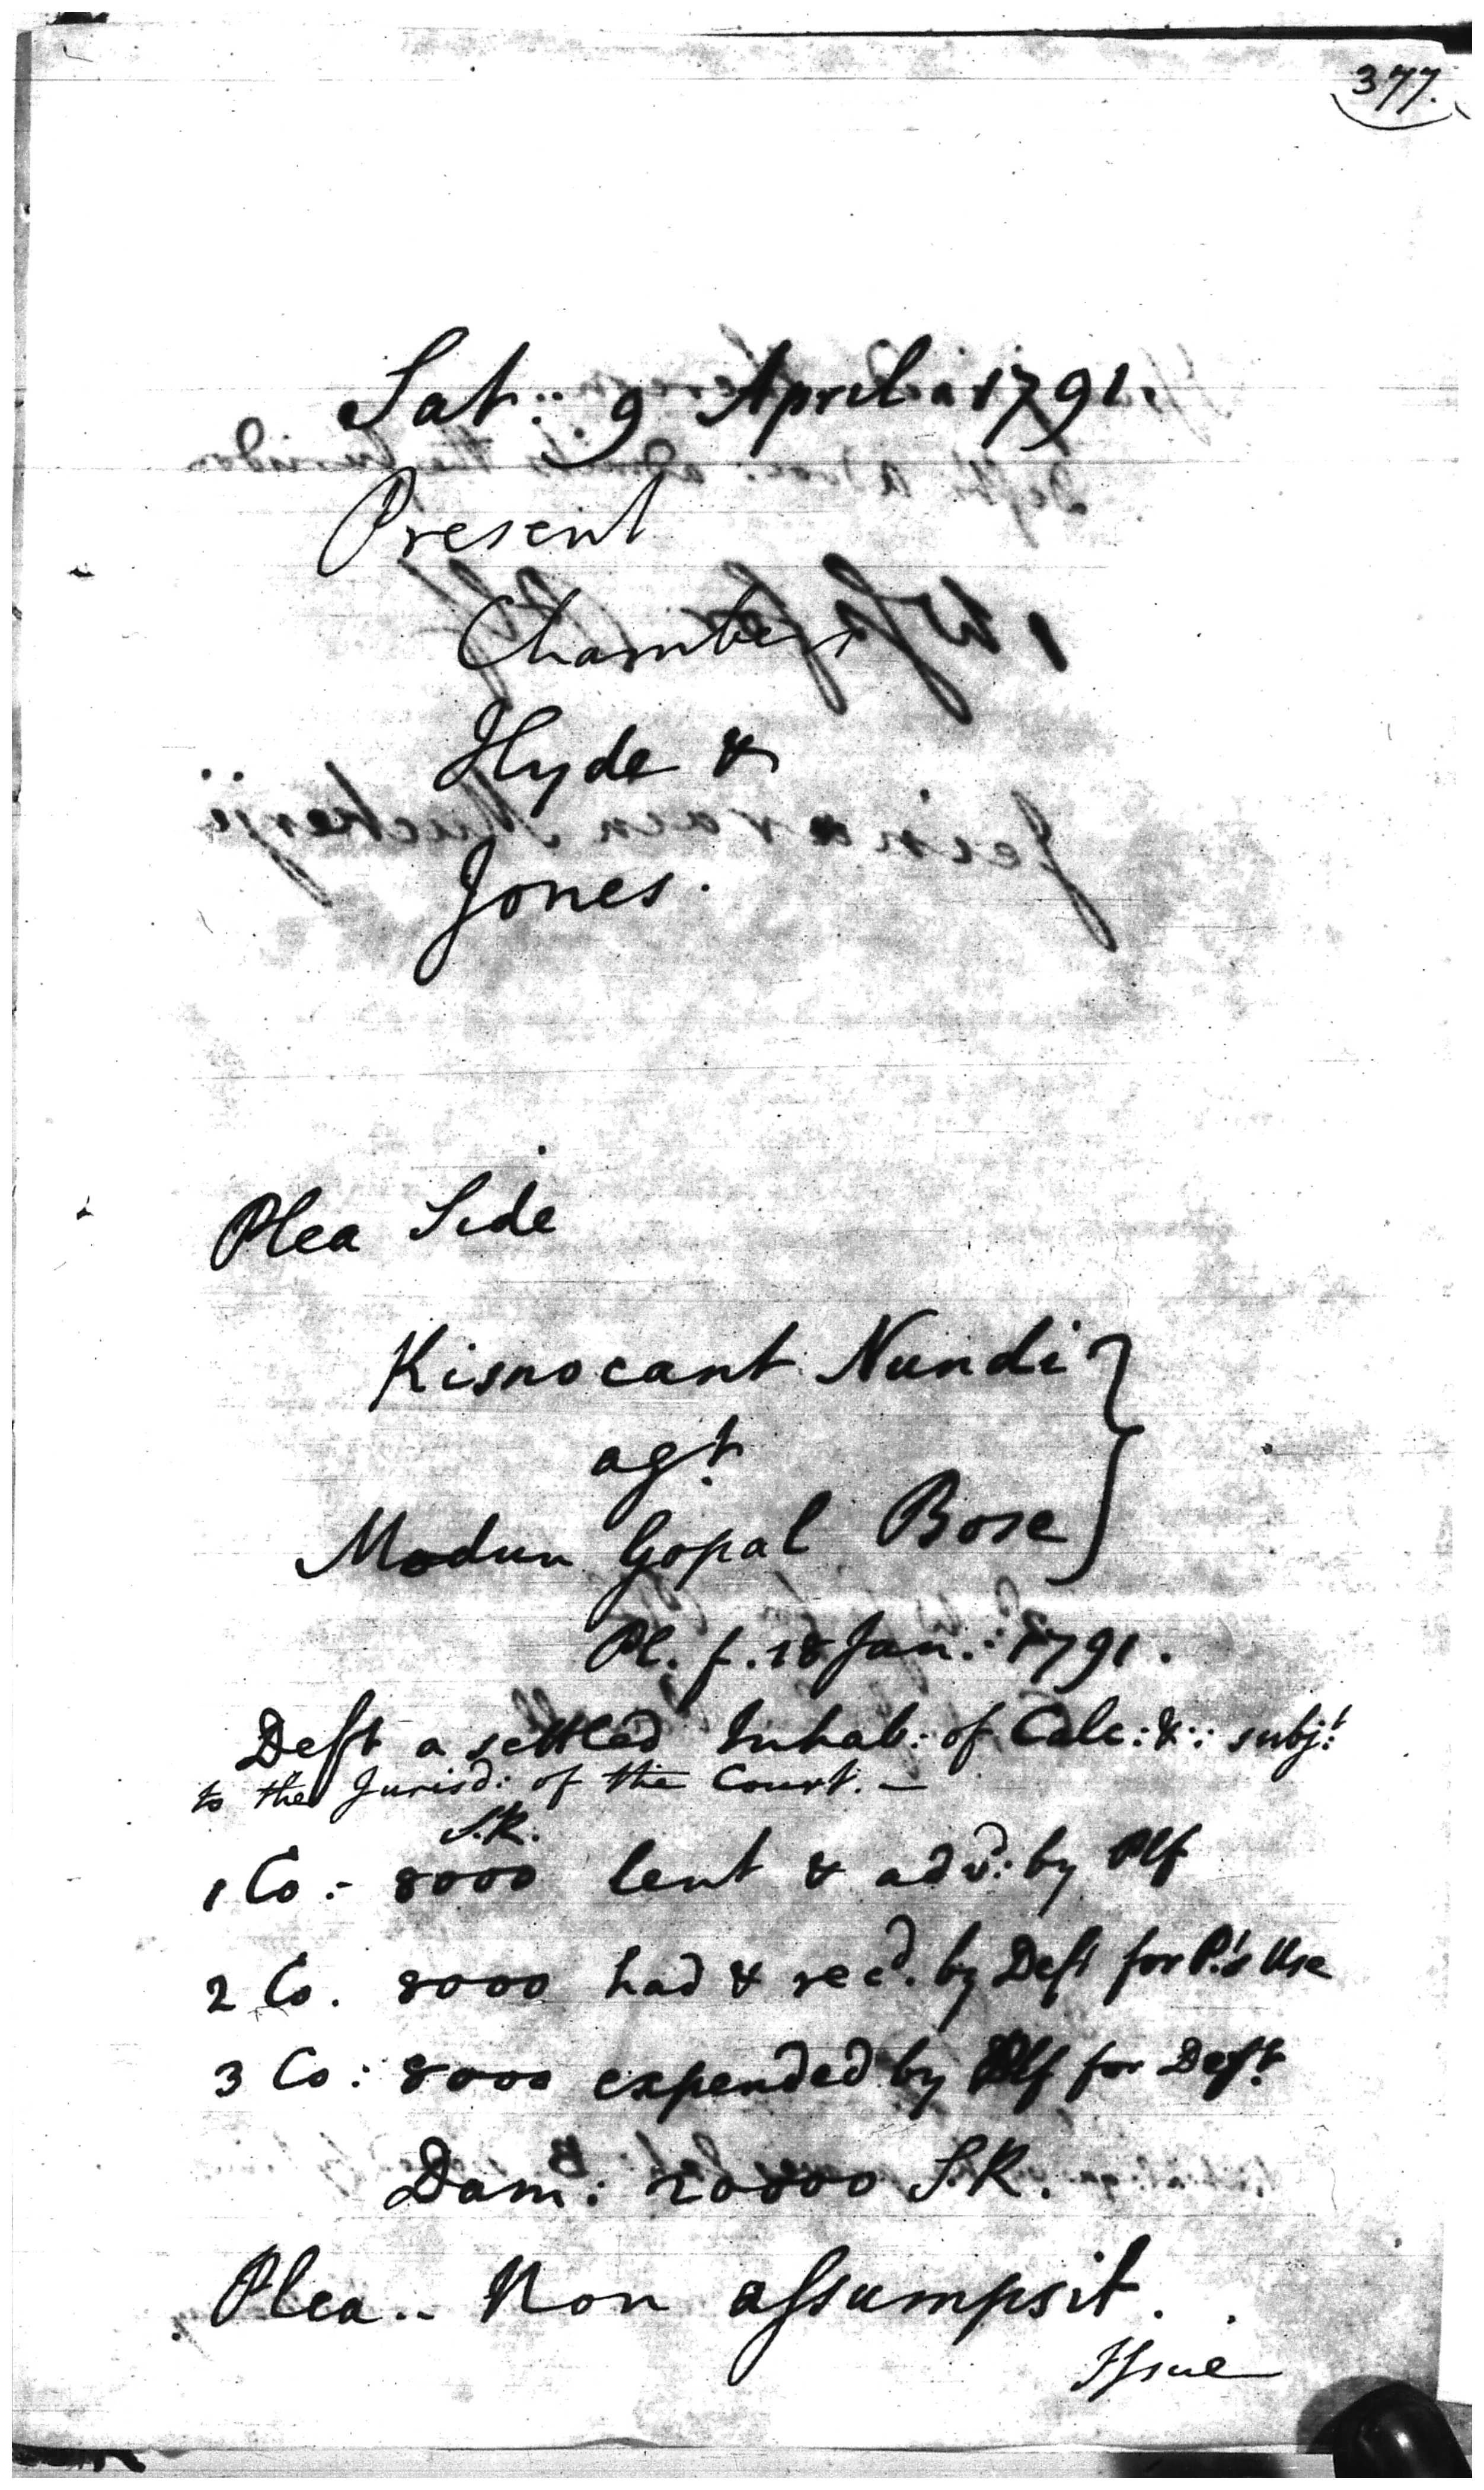 377.
Sat: 9 April 1791.
Present
Chambers
Hyde &
Jones.
Plea Side
Kisnocant Nundi
agt.
Modun Gopal Bose
Pl. f. 18 Jan: 1791.
Deft a settled Inhab: of Calc: &: subjt:
to the Jurisd: of the Court. —
S.R.
1 Co:- 8000 lent & advd: by Plf
2 Co. 8000 had & recd. by Deft for P.'s Use
3 Co: 8000 expended by Plf for Deft.
Dam: 20000 S.R.
Plea.. Non assumpsit.
Issue